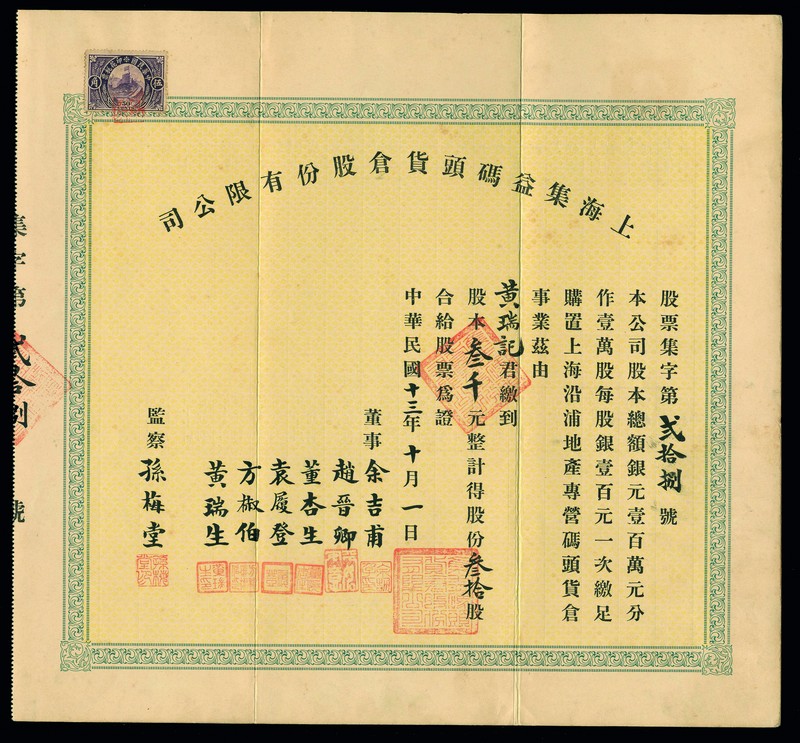 上海集益碼頭貨倉股份有限公司
股票集字第貳拾捌號
本公司股本總額銀元壹百萬元分
作壹萬股每股銀壹百元一次繳足
購置上海沿浦地產專營碼頭貨倉
事業茲由
黃瑞記君繳到
股本叁千元整計得股份叁拾股
合給股票爲證
中華民國十三年十月一日
董事余吉甫
趙晉卿
董杏生
袁履登
方椒伯
黃瑞生
監察孫梅堂
集字第貳拾捌號